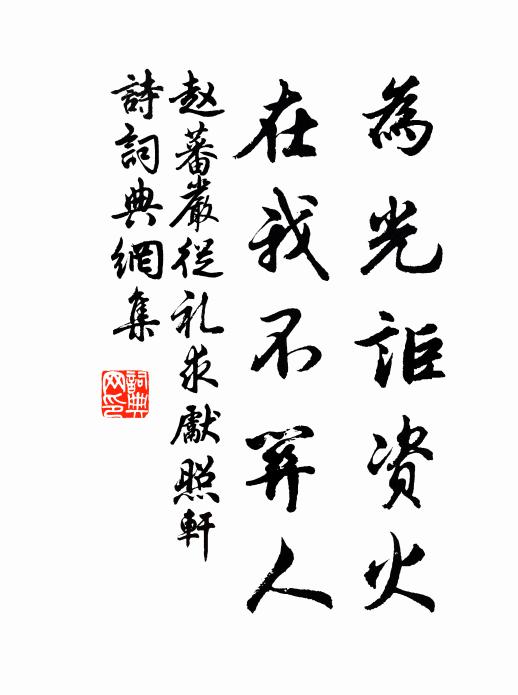 為光詎資火
在我不人
赵蕃嚴從礼求獻照軒
詩詞典網集
詞典
网印